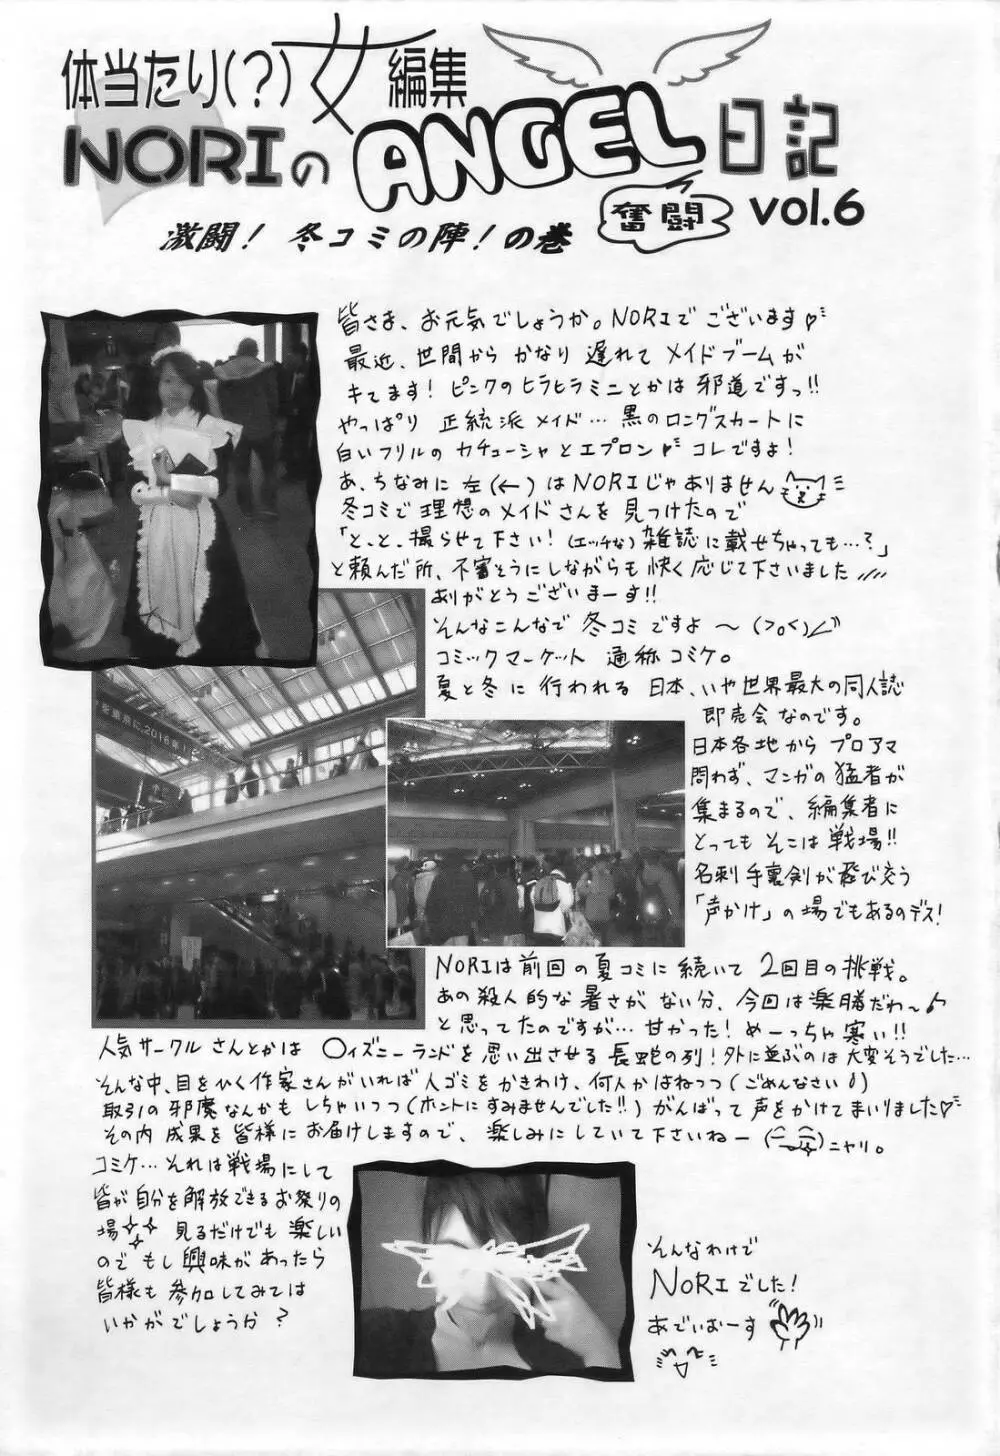 体当たり(?)女編集
NORIのANGEL日記
奮闘
vol.6
激闘! 冬コミの陣!の巻
皆さま、お元気でしょうか。NORIでございます♡
最近、世間からかなり遅れてメイドブームが
キてます! ピンクのヒラヒラミニとかは邪道ですっ!!
やっぱり正統派メイド…黒のロングスカートに
白いフリルのカチューシャとエプロン♡コレですよ!
あ、ちなみに左(←)はNORIじゃありません
冬コミで理想のメイドさんを見つけたので
「と、と、撮らせて下さい!(エッチな)雑誌に載せちゃっても…?」
と頼んだ所、不審そうにしながらも快く応じて下さいました
ありがとうございまーす!!
そんなこんなで冬コミですよ〜(>o<)
コミックマーケット 通称コミケ。
夏と冬に行われる日本、いや世界最大の同人誌
即売会なのです。
日本各地からプロアマ
問わず、マンガの猛者が
集まるので、編集者に
とってもそこは戦場!!
名刺手裏剣が飛び交う
「声かけ」の場でもあるのデス!
を東京に、2016年!
NORIは前回の夏コミに続いて2回目の挑戦。
あの殺人的な暑さがない分、今回は楽勝だわ〜♪
と思ってたのですが…甘かった!めーっちゃ寒い!!
人気サークルさんとかは〇ィズニーランドを思い出させる長蛇の列!外に並ぶのは大変そうでした…
そんな中、目をひく作家さんがいれば人ゴミをかきわけ、何人かはねつつ(ごめんなさい)
取引の邪魔なんかもしちゃいつつ(ホントにすみませんでした!!)がんばって声をかけてまいりました♡
その内成果を皆様にお届けしますので、楽しみにしていて下さいねー ニヤリ。
コミケ…それは戦場にして
皆が自分を解放できるお祭りの
場 見るだけでも楽しい
のでもし興味があったら
皆様も参加してみては
いかがでしょうか?
そんなわけで
NORIでした!
あでぃおーす